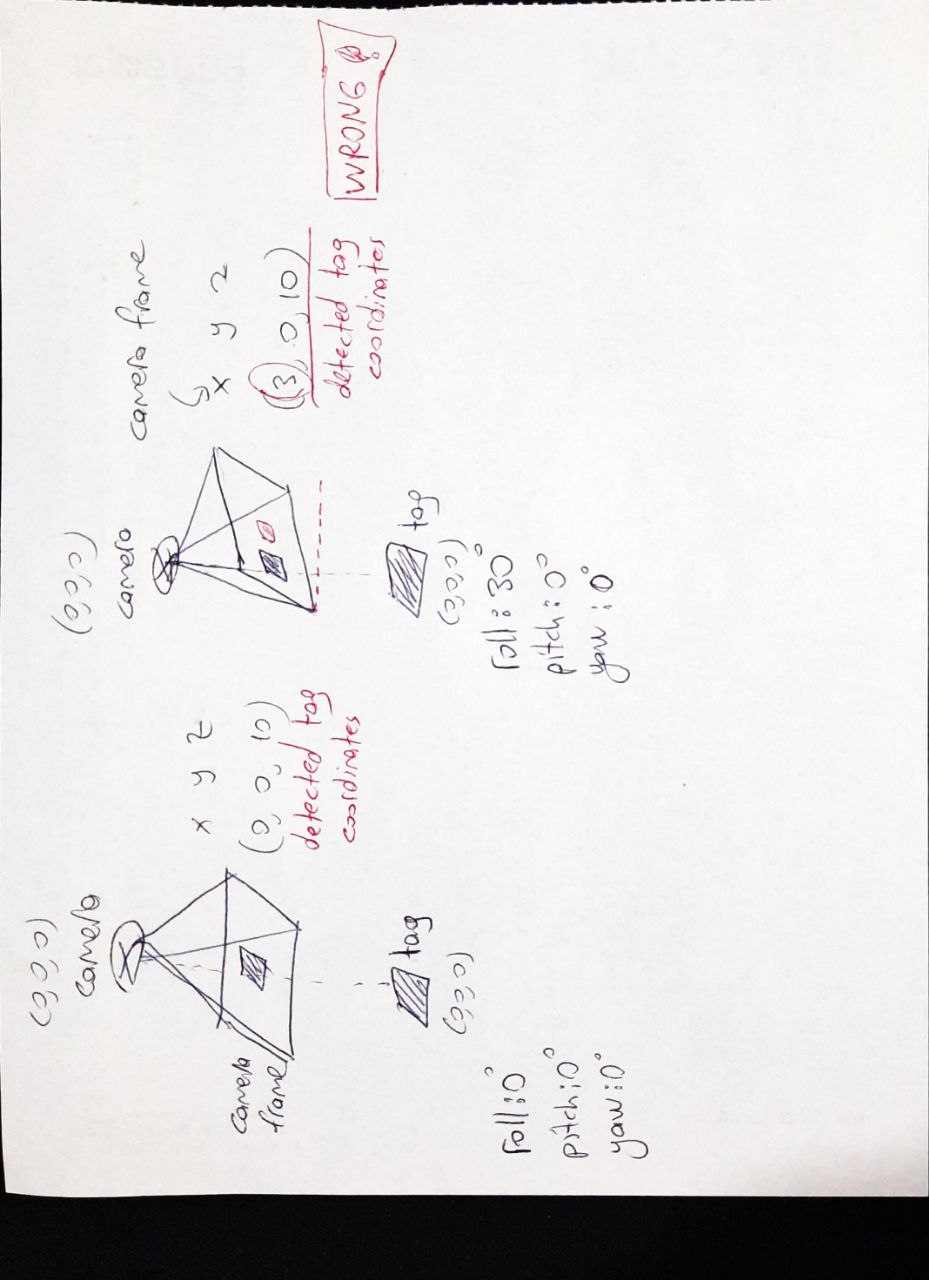 (0,0,0)
camera
camera
frame
x y z
(0, 0, 10)
detected tag
coordinates
tag
(0,0,0)
roll:0°
pitch:0°
yaw:0°
(0,0,0)
camera
camera frame
x y z
(3, 0, 10)
detected tag
coordinates
WRONG !
tag
(0,0,0)
roll: 30°
pitch: 0°
yaw: 0°